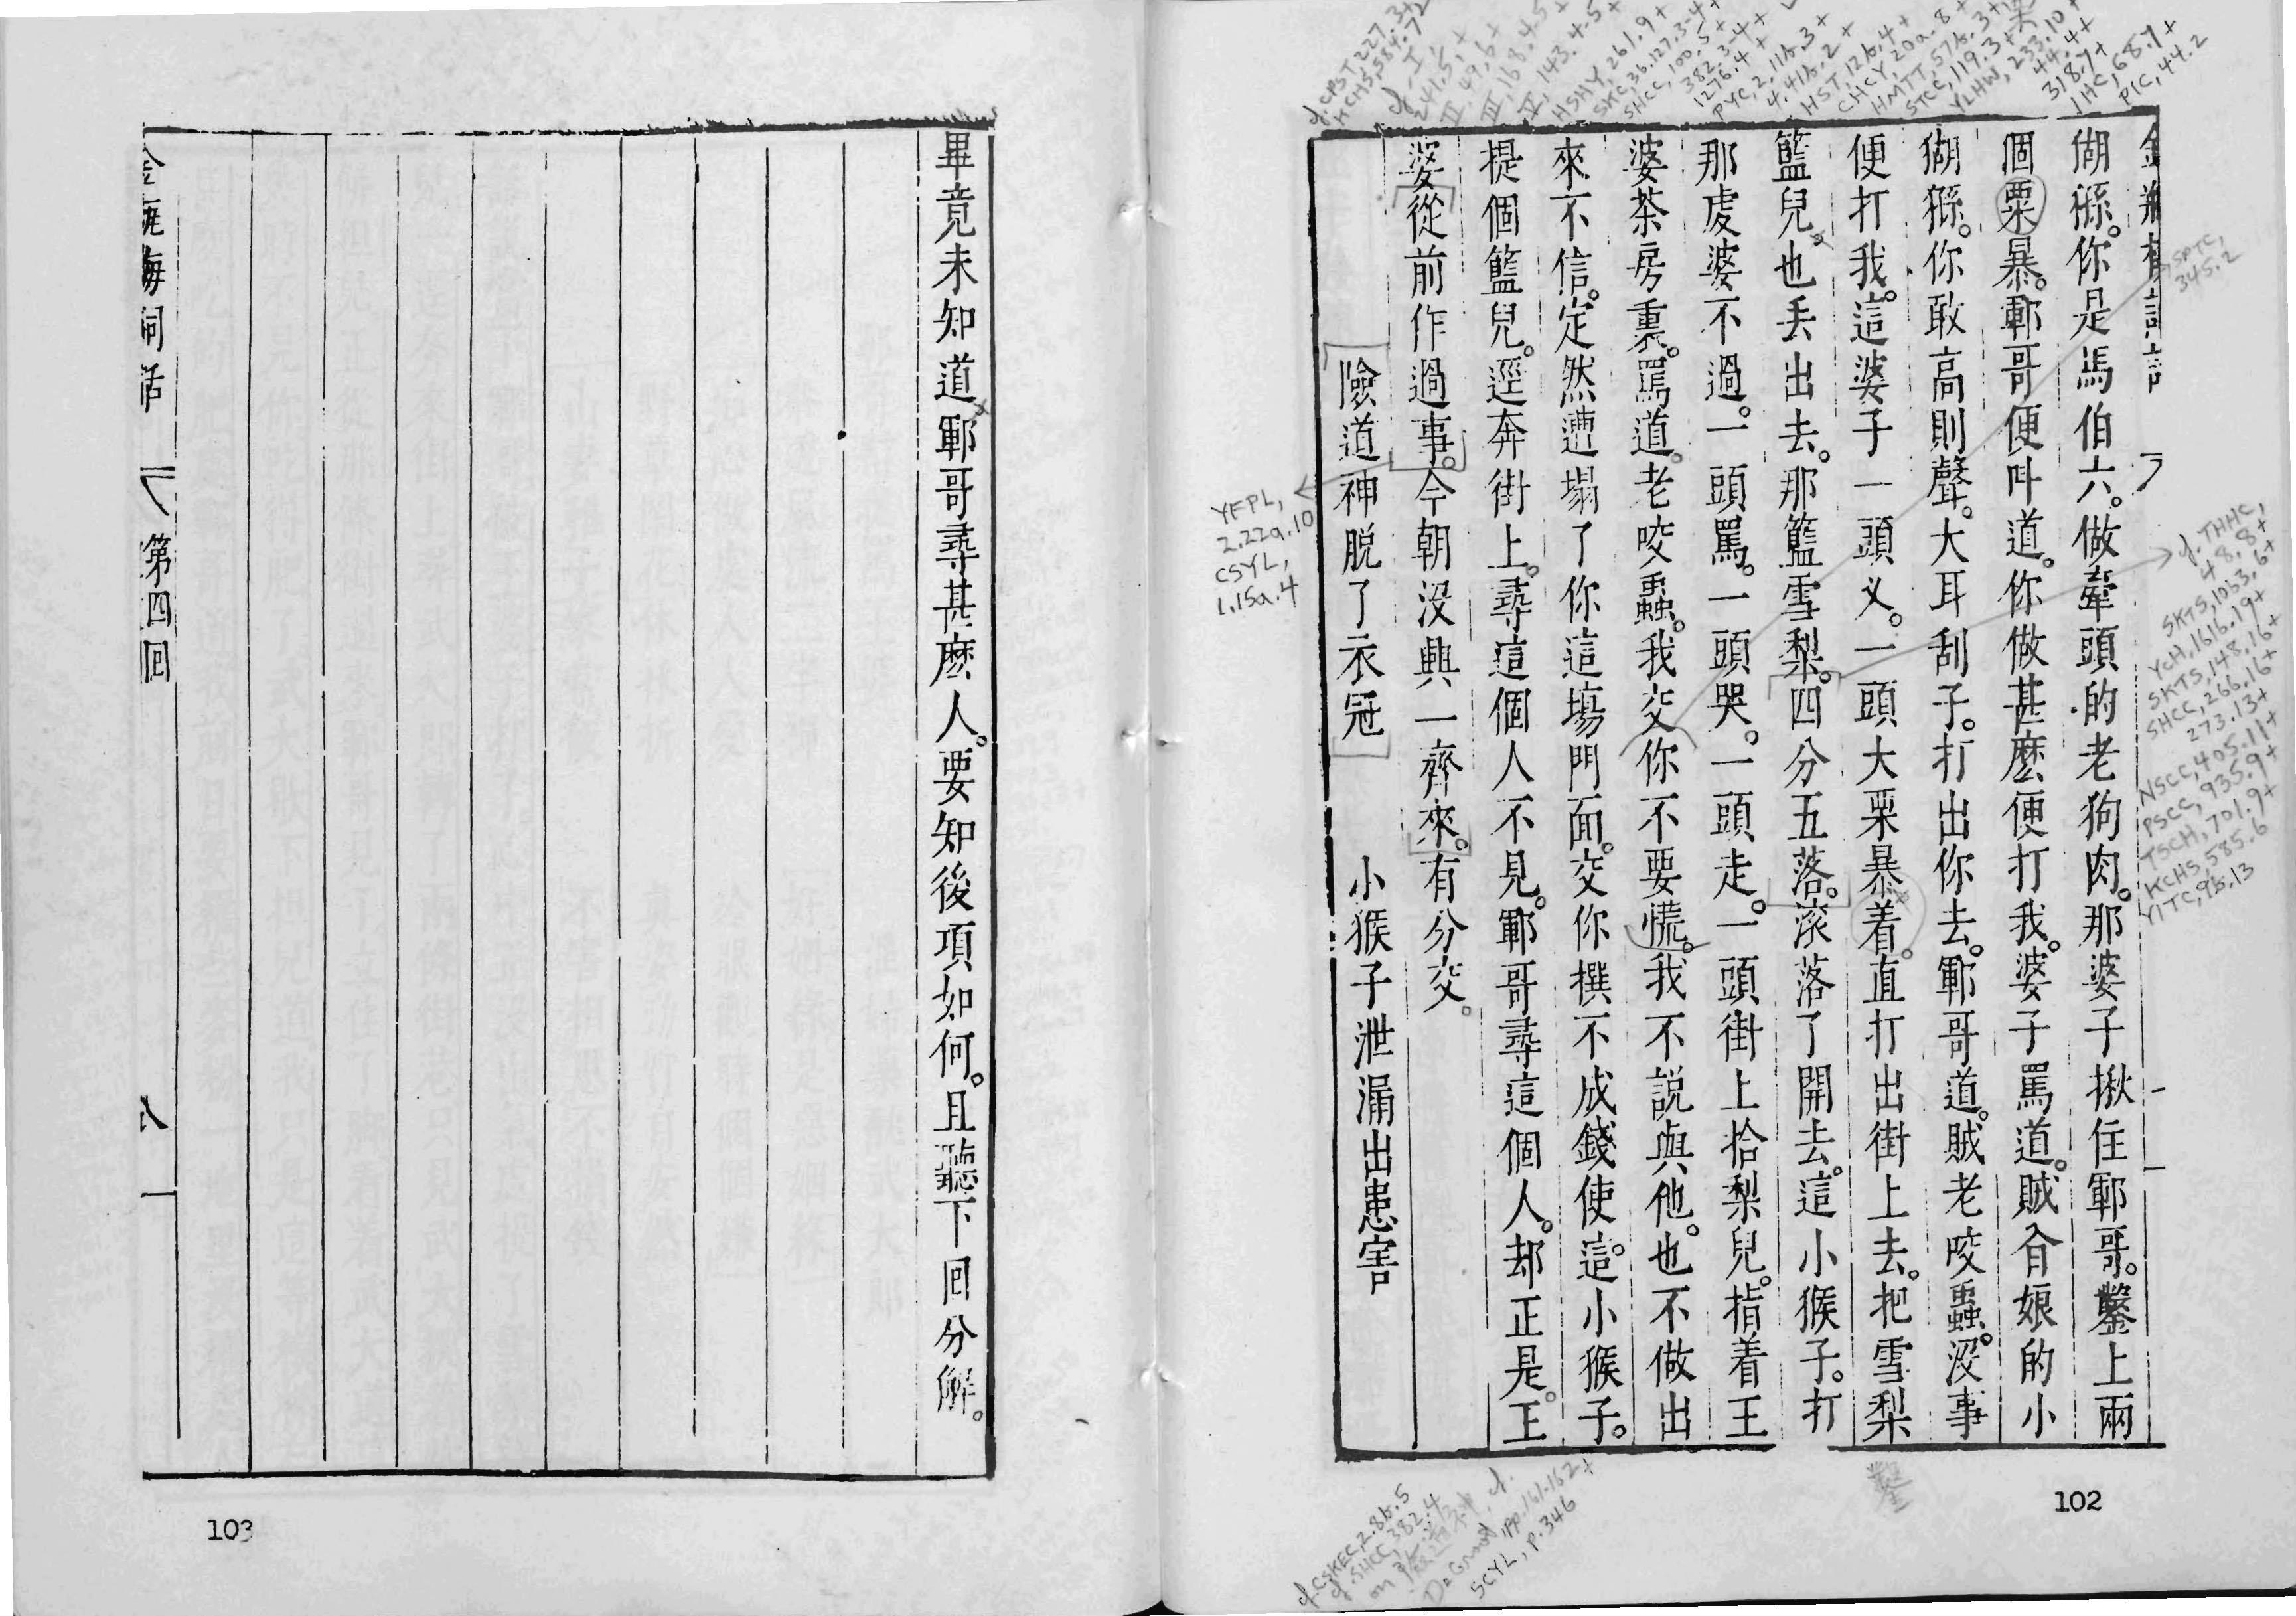 金瓶梅詞話
猢猻。你是馬伯六。做牽頭的老狗肉。那婆子揪住鄆哥。鑿上兩
個栗暴。鄆哥便呌道。你做甚麽便打我。婆子罵道。賊𠓗娘的小
猢猻。你敢高則聲。大耳刮子。打出你去。鄆哥道。賊老咬蟲。沒事
便打我。這婆子一頭义。一頭大栗暴着。直打出街上去。把雪梨
籃兒。也丟出去。那籃雪梨。四分五落。滚落了開去。這小猴子。打
那虔婆不過。一頭罵。一頭哭。一頭走。一頭街上拾梨兒。指着王
婆茶房裏。罵道。老咬蟲。我交你不要慌。我不說與他。也不做出
來不信。定然遭塌了你這塲門面。交你撰不成錢使。這小猴子。
提個籃兒。逕奔街上。尋這個人不見。鄆哥尋這個人。却正是。王
婆從前作過事。今朝没興一齊來。有分交。
險道神脱了衣冠　小猴子泄漏出患害
YFPL,
2.22a.10
CSYL,
1.15a.4
SPTC,
345.2
cf. THHC,
48.8+
SKTS, 1063.6+
YCH, 1616.19+
SKTS, 148.16+
SHCC, 266.16+
273.13+
NSCC, 405.11+
PSCC, 935.9+
TSCH, 701.9+
KCHS, 585.6
YITC, 9b.13
cf. CPST 227.3+
KCHS, 584.7
241.5+
II, 49.6+
III, 168.4-5+
IV, 143.4-5+
HSHY, 261.9+
SKC, 36.127.3-4+
SHCC, 100.5+
382.3-4+
1276.4+
PYC, 2, 11b.3+
4.41b.2+
HST, 12b.4+
CHCY, 20a.8+
HMTT, 57b.3+
STCC, 119.3+
YLHW, 233.10+
44.4+
318.7+
IHC, 68.7+
PIC, 44.2
cf. CSKEC, 2.8b.5
cf. SHCC, 382.4
SCYL, p.346
鑿
102
畢竟未知道鄆哥尋甚麽人。要知後項如何。且聽下回分解。
金瓶梅詞話　第四回　八
103